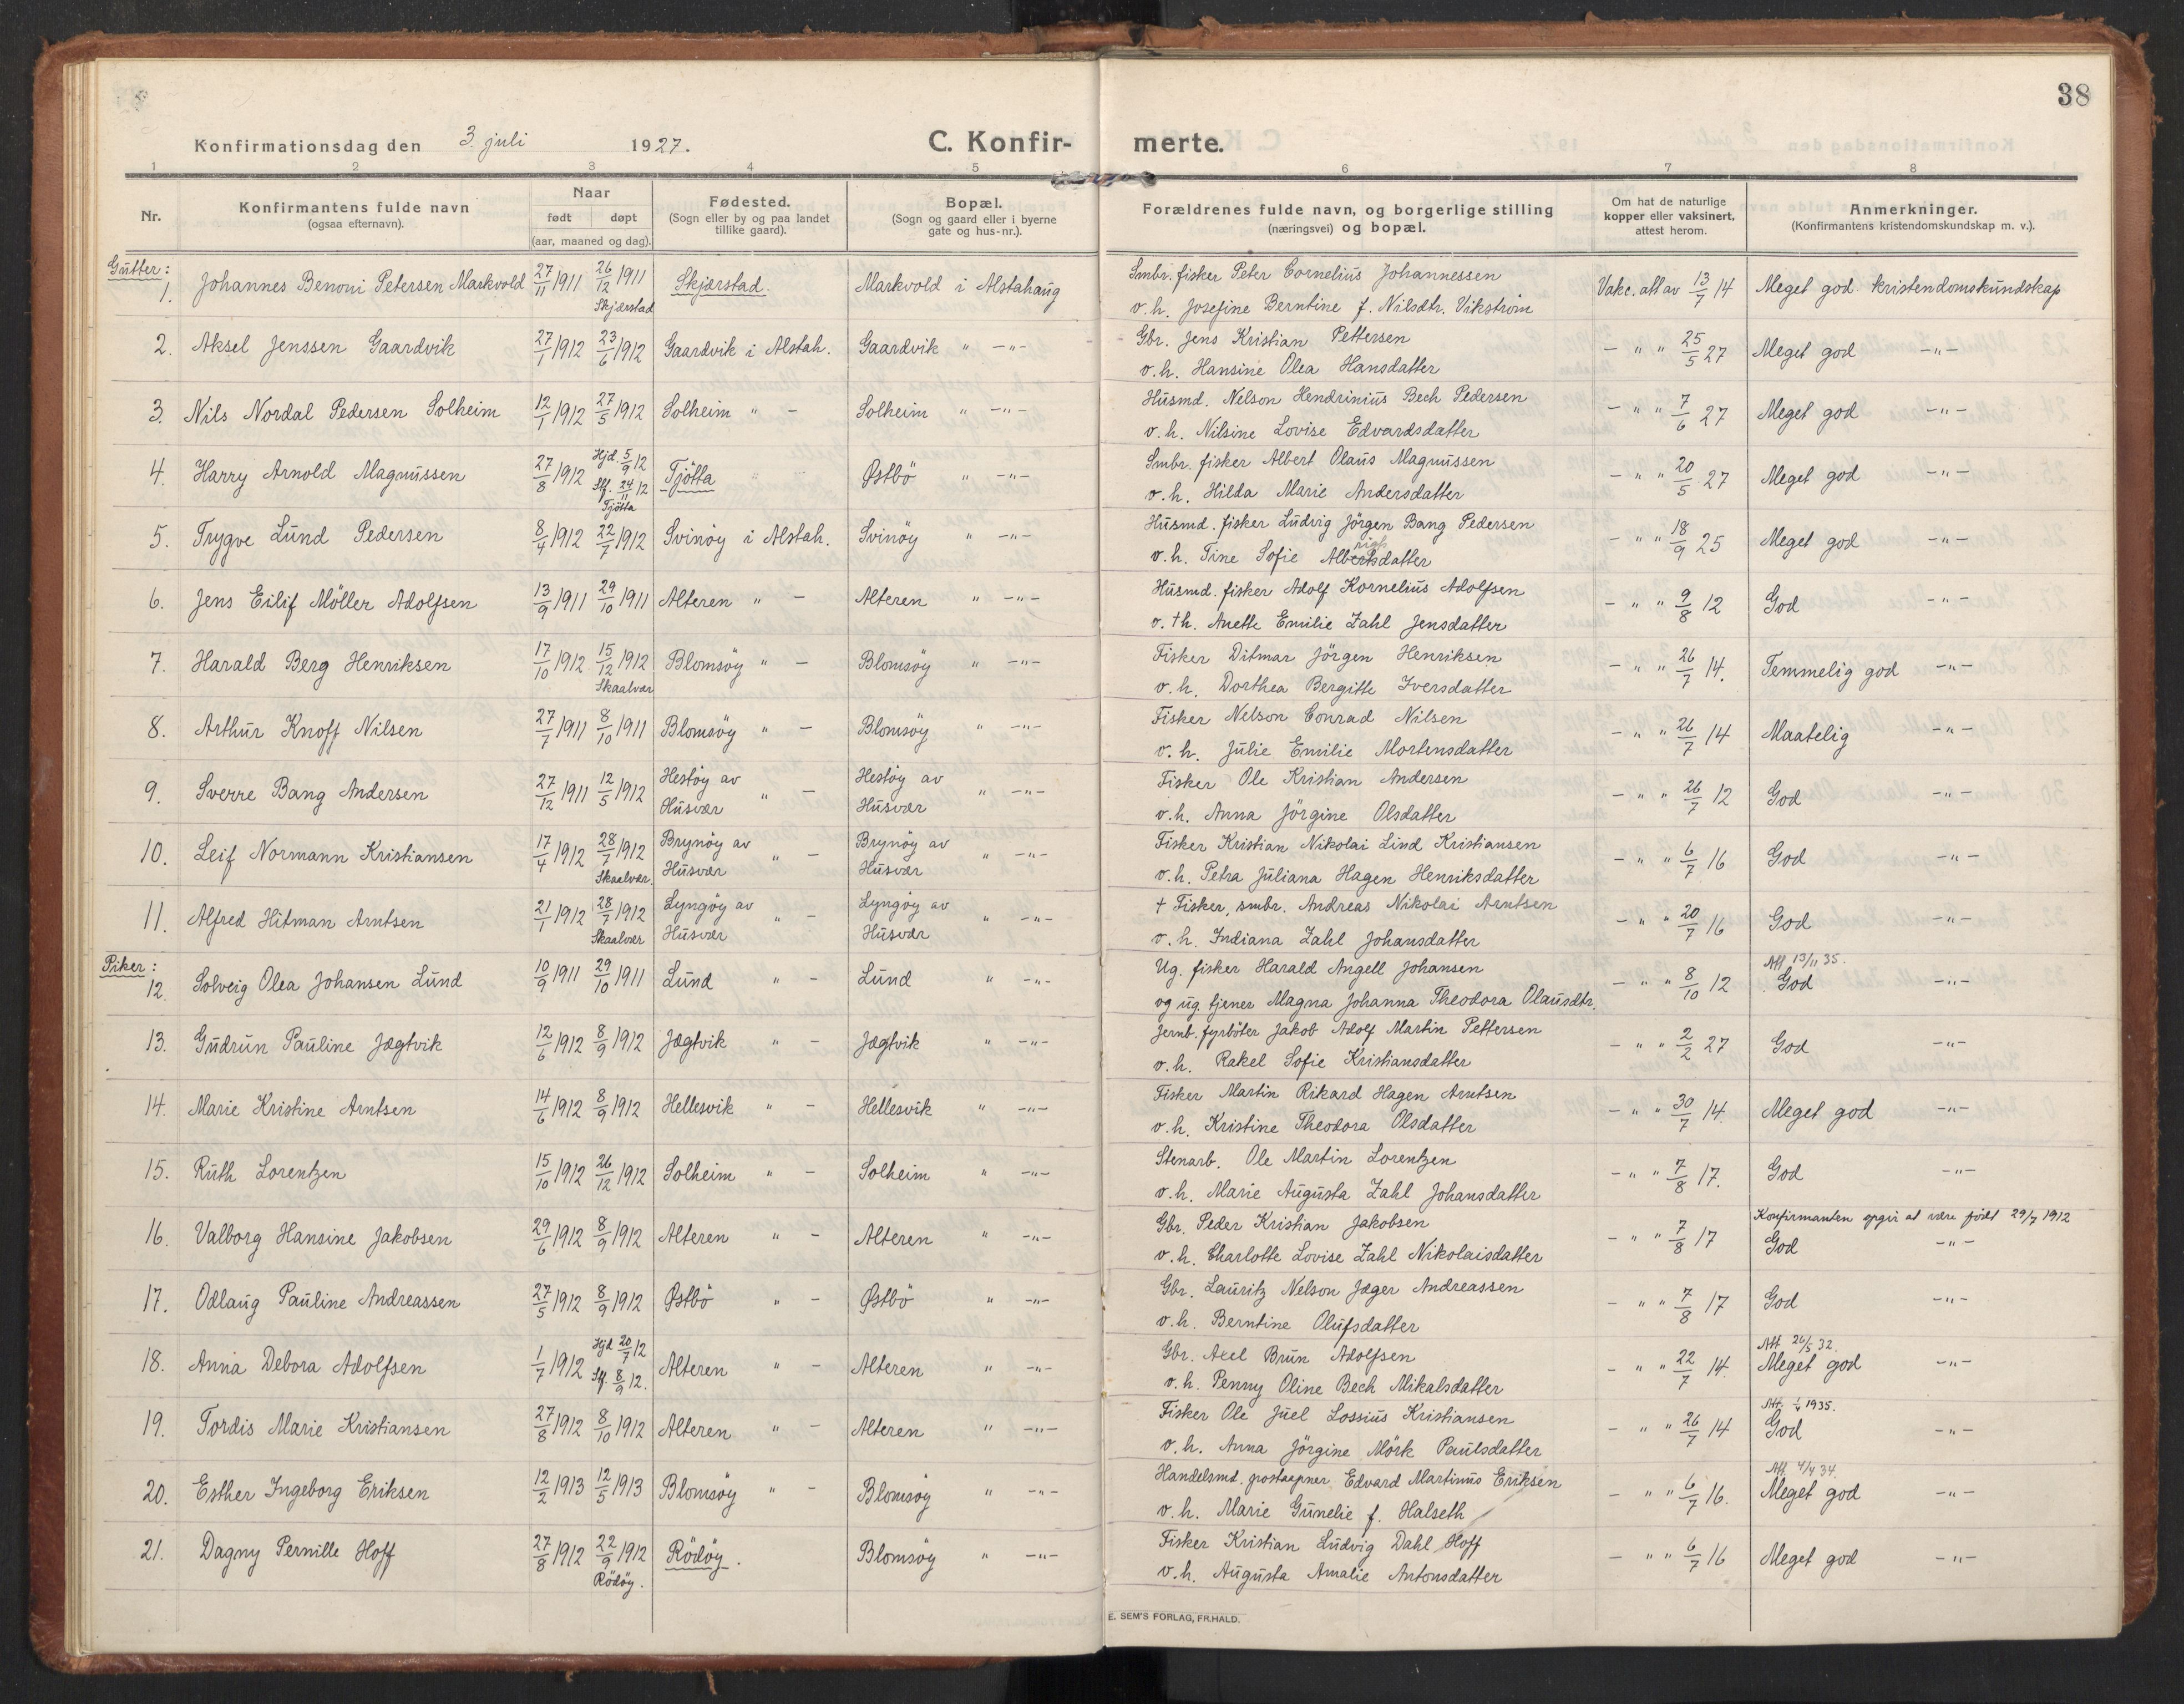 38
Konfirmationsdag den 3. juli 1927. C. Konfir- merte.
1 2 3 4 5 6 7 8
Nr.
Konfirmantens fulde navn
(ogsaa efternavn).
Naar
født døpt
(aar, maaned og dag).
Fødested.
(Sogn eller by og paa landet
tillike gaard).
Bopæl.
(Sogn og gaard eller i byerne
gate og hus-nr.).
Forældrenes fulde navn, og borgerlige stilling
(næringsvei) og bopæl.
Om hat de naturlige
kopper eller vaksinert,
attest herom.
Anmerkninger.
(Konfirmantens kristendomskundskap m. v.).
Gutter:
1. Johannes Benoni Petersen Markvold 27/11 1911 26/12 1911 Skjærstad Skjærstad. Markvold i Alstahaug
Smbr. fisker Peter Cornelius Johannessen
v. h. Josefine Berntine f. Nilsdtr. Vikström
Vakc. att av 13/7 14 Meget god kristendomskundskap
2. Aksel Jenssen Gaardvik 27/1 1912 23/6 1912 Gaardvik i Alstah. Gaardvik " -"-
Gbr. Jens Kristian Pettersen
v. h. Hansine Olea Hansdatter
- " " 25/5 27 Meget god -"-
3. Nils Nordal Pedersen Solheim 12/1 1912 27/5 1912 Solheim " - Solheim " -"-
Husmd. Nelson Hendrinius Bech Pedersen
v. h. Nilsine Lovise Edvardsdatter
- " " 7/6 27 Meget god -"-
4. Harry Arnold Magnussen 27/8 1912 Hjd. 5/9 12 Stf. 24/11 12 Tjötta Tjötta Østbö " -"-
Smbr. fisker Albert Olaus Magnussen
v. h. Hilda Marie Andersdatter
- " " 20/5 27 Meget god -"-
5. Trygve Lund Pedersen 8/4 1912 22/7 1912 Svinöy i Alstah. Svinöy " -"-
Husmd. fisker Ludvig Jörgen Bang Pedersen
v. h. Tine Sofie Albertsdatter
- " " 18/9 25 Meget god -"-
6. Jens Eilif Möller Adolfsen 13/9 1911 29/10 1911 Alteren " - Alteren " -"-
Husmd. fisker Adolf Kornelius Adolfsen
v. †h. Anette Emilie Zahl Jensdatter
- " " 9/8 12 God -"-
7. Harald Berg Henriksen 17/10 1912 15/12 1912 Skaalvær Blomsöy " - Blomsöy " -"-
Fisker Ditmar Jörgen Henriksen
v. h. Dorthea Bergitte Iversdatter
- " " 26/7 14. Temmelig god -"-
8. Arthur Knoff Nilsen 27/7 1911 8/10 1911 Blomsöy " - Blomsöy " -"-
Fisker Nelson Conrad Nilsen
v. h. Julie Emilie Mortensdatter
- " " 26/7 14 Maatelig -"-
9. Sverre Bang Andersen 27/12 1911 12/5 1912 Hestöy av Husvær " - Hestöy av Husvær " -"-
Fisker Ole Kristian Andersen
v. h. Anna Jörgine Olsdatter
- " " 26/7 12 God -"-
10. Leif Normann Kristiansen 17/4 1912 28/7 1912 Skaalvær. Brynöy av Husvær " - Brynöy av Husvær " -"-
Fisker Kristian Nikolai Lind Kristiansen
v. h. Petra Juliana Hagen Henriksdatter
- " " 6/7 16 God -"-
11. Alfred Hitman Arntsen 21/1 1912 28/7 1912 Skaalvær Lyngöy av Husvær " - Lyngöy av Husvær " -"-
† Fisker, smbr. Andreas Nikolai Arntsen
v. h. Indiana Zahl Johansdatter
- " " 20/7 16 God -"-
Piker:
12. Solveig Olea Johansen Lund 10/9 1911 29/10 1911 Lund " - Lund " -"-
Ug. fisker Harald Angell Johansen
og ug. tjener Magna Johanna Theodora Olausdtr.
- " " 8/10 12 Att. 13/11 35. God -"-
13. Gudrun Pauline Jægtvik 12/6 1912 8/9 1912 Jægtvik " - Jægtvik " -"-
Jernb. fyrböter Jakob Adolf Martin Pettersen
v. h. Rakel Sofie Kristiansdatter
- " " 2/2 27 God -"-
14. Marie Kristine Arntsen 14/6 1912 8/9 1912 Hellesvik " - Hellesvik " -"-
Fisker Martin Rikard Hagen Arntsen
v. h. Kristine Theodora Olsdatter
- " " 30/7 14. Meget god -"-
15. Ruth Lorentzen 15/10 1912 26/12 1912 Solheim " - Solheim " -"-
Stenarb. Ole Martin Lorentzen
v. h. Marie Augusta Zahl Johansdatter
- " " 7/8 17. God -"-
16. Valborg Hansine Jakobsen 29/6 1912 8/9 1912 Alteren " - Alteren " -"-
Gbr. Peder Kristian Jakobsen
v. h. Charlotte Lovise Zahl Nikolaisdatter
- " " 7/8 17 Konfirmanten opgir at være født 29/7 1912
God -"-
17. Odlaug Pauline Andreassen 27/5 1912 8/9 1912 Østbö " - Østbö " -"-
Gbr. Lauritz Nelson Jæger Andreassen
v. h. Berntine Olufsdatter
- " " 7/8 17 God -"-
18. Anna Debora Adolfsen 1/7 1912 Hjd 20/7 12 Stf. 8/9 12. Alteren " - Alteren " -"-
Gbr. Axel Brun Adolfsen
v. h. Penny Oline Bech Mikalsdatter
- " " 22/7 14. Att. 26/5 32. Meget god -"-
19. Tordis Marie Kristiansen 27/8 1912 8/10 1912 Alteren " - Alteren " -"-
Fisker Ole Juel Lossius Kristiansen
v. h. Anna Jörgine Mörk Paulsdatter
- " " 26/7 14 Att. 1935. God -"-
20. Esther Ingeborg Eriksen 12/2 1913 12/5 1913 Blomsöy " - Blomsöy " -"-
Handelsmd. postaapner Edvard Martinus Eriksen
v. h. Marie Gunelie f. Halseth
- " " 6/7 16. Att. 4/4 34. Meget god -"-
21. Dagny Pernille Hoff 27/8 1912 22/9 1912 Rödöy. Rödöy. Blomsöy " -"-
Fisker Kristian Ludvig Dahl Hoff
v. h. Augusta Amalie Antonsdatter
- " " 6/7 16 Meget god -"-
E. SEM'S FORLAG, FR.HALD.